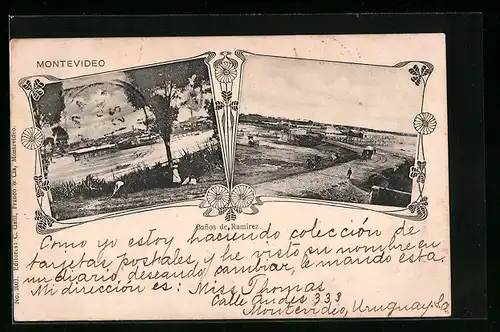 MONTEVIDEO
Baños de Ramirez
No. 3001. Editores: C. Galli, Franco & Cía, Montevideo.
Como yo estoy haciendo colección de
tarjetas postales, y he visto su nombre en
un diario, deseando cambiar, le mando esta.
Mi dirección es: Miss Thomas
Calle Andes 333
Montevideo, Uruguay. Sa